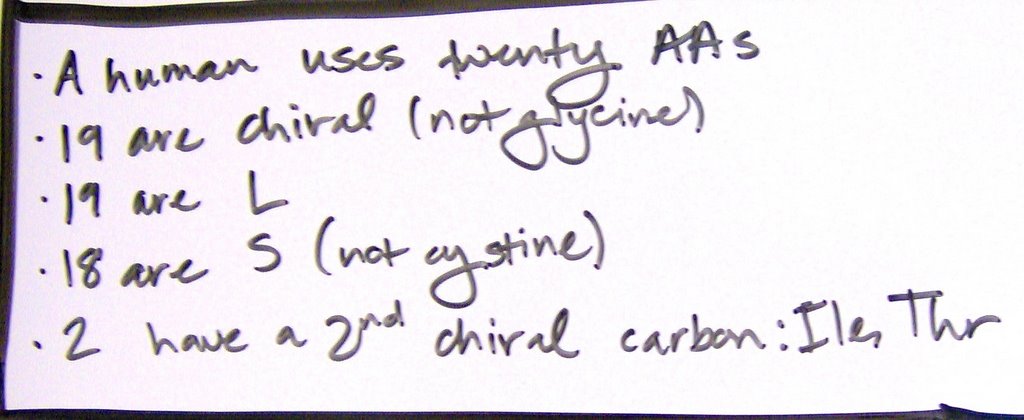 · A human uses twenty AAs
· 19 are chiral (not glycine)
· 19 are L
· 18 are S (not cystine)
· 2 have a 2nd chiral carbon: Ile, Thr